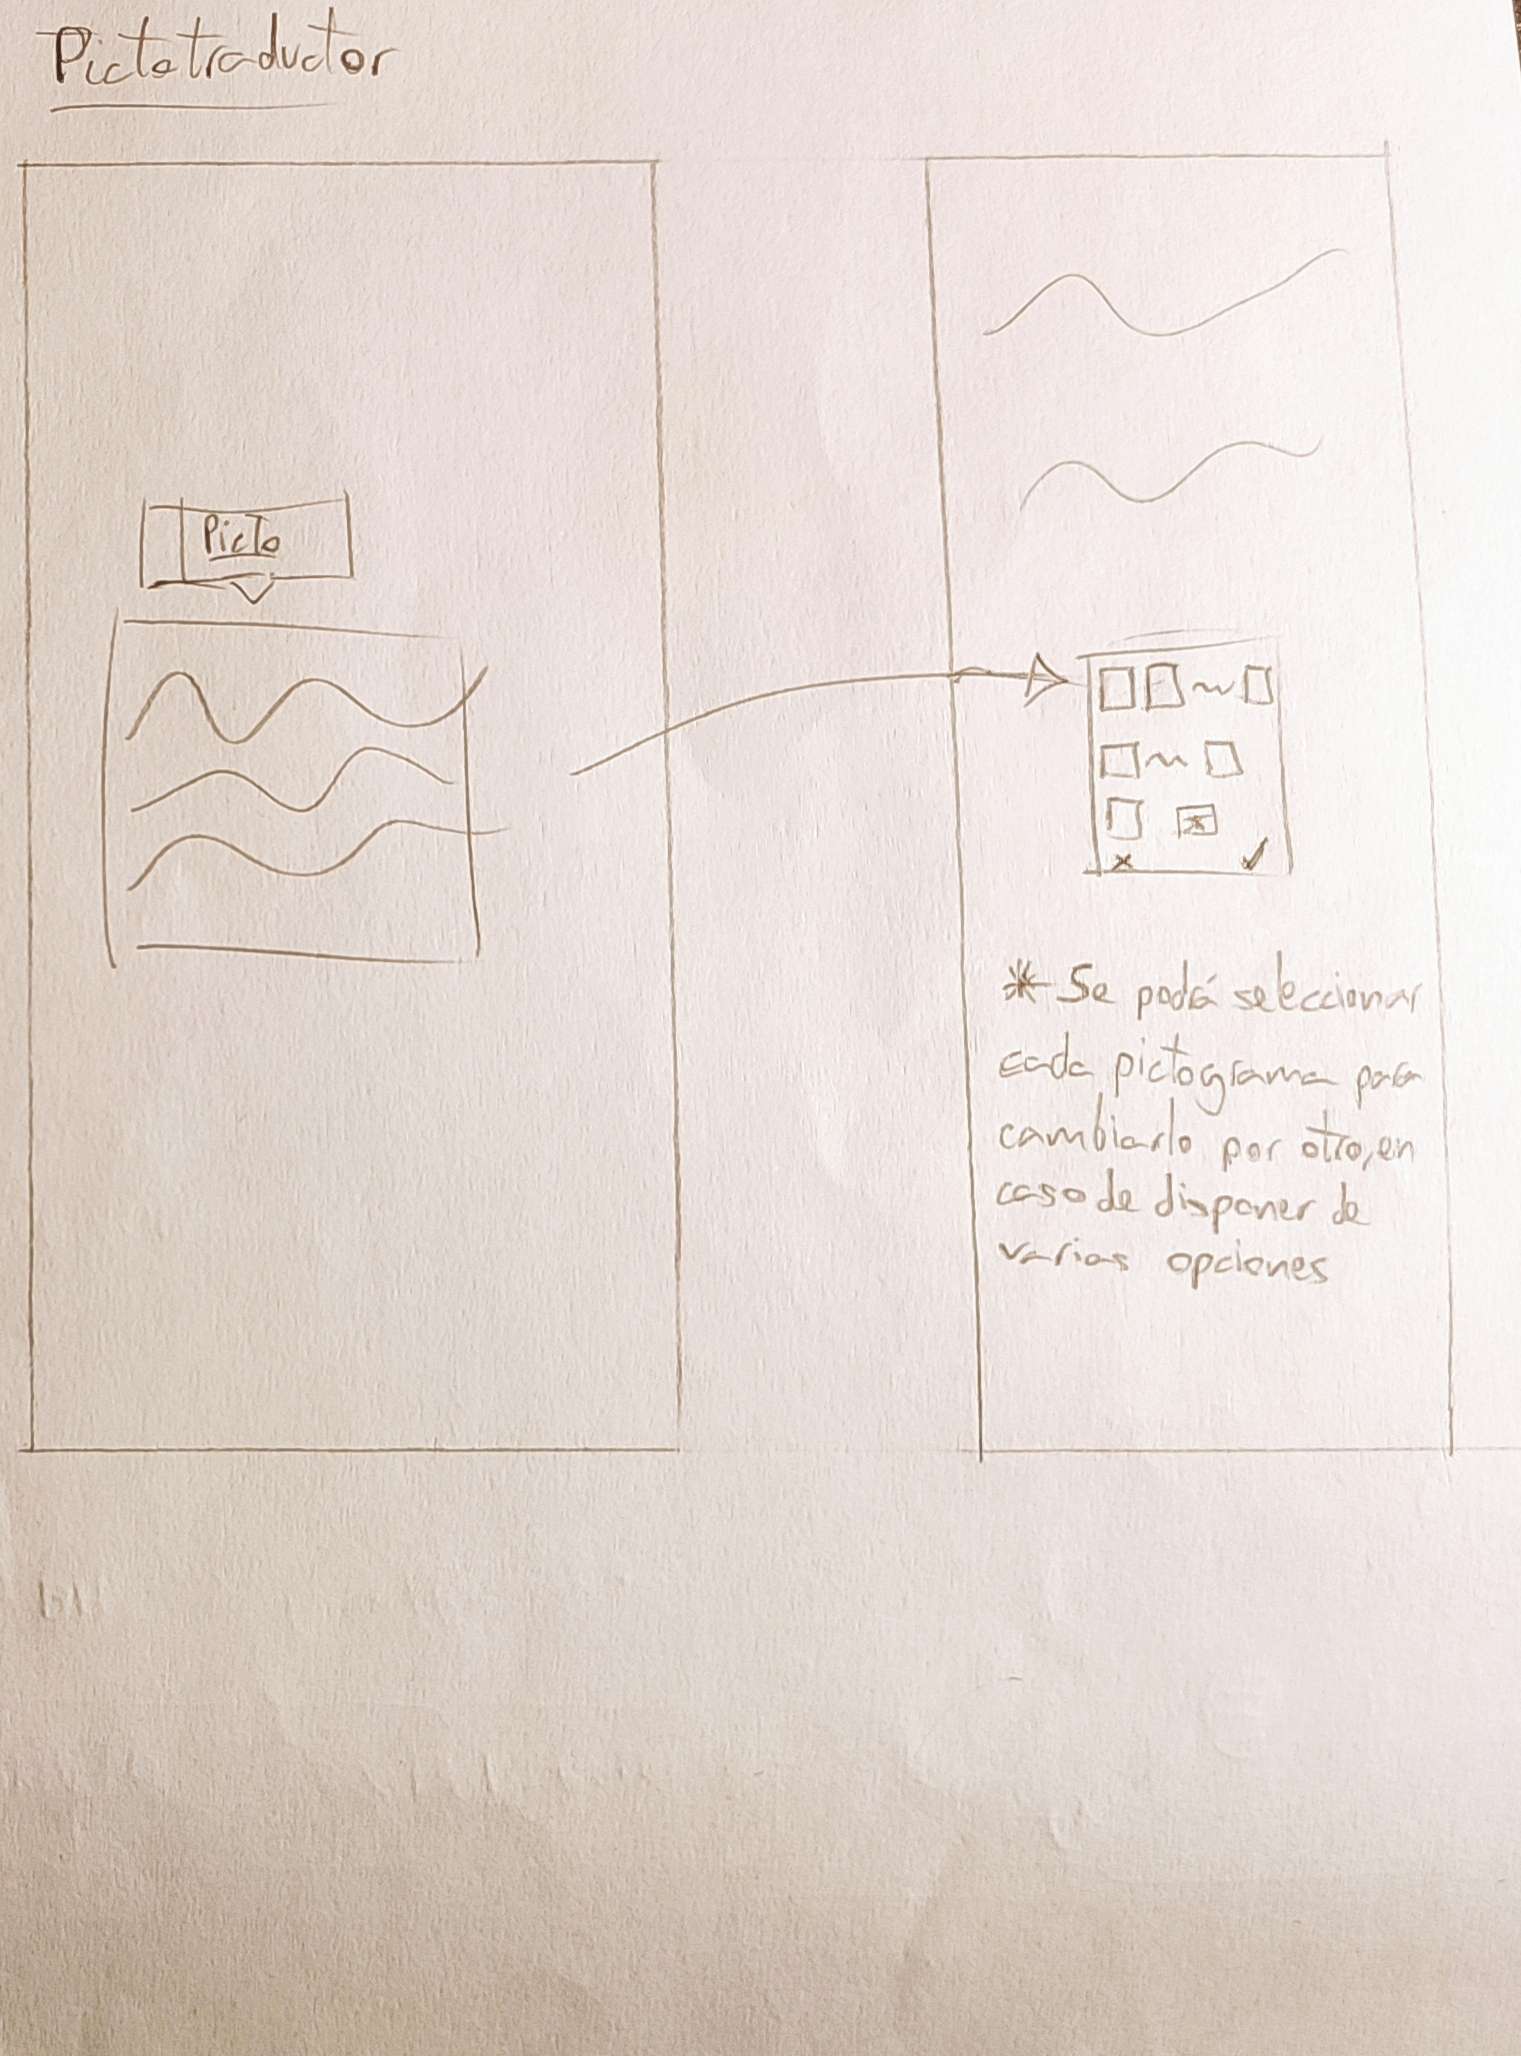 Pictotraductor
Picto
* Se podrá seleccionar
cada pictograma para
cambiarlo por otro, en
caso de disponer de
varias opciones